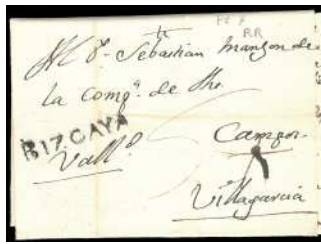 PE 7
RR
Al P. Sebastian Manzon de
la Comp.ª de Jhs.
B17.CAYA
Vall.d
Campos.
Villagarcia